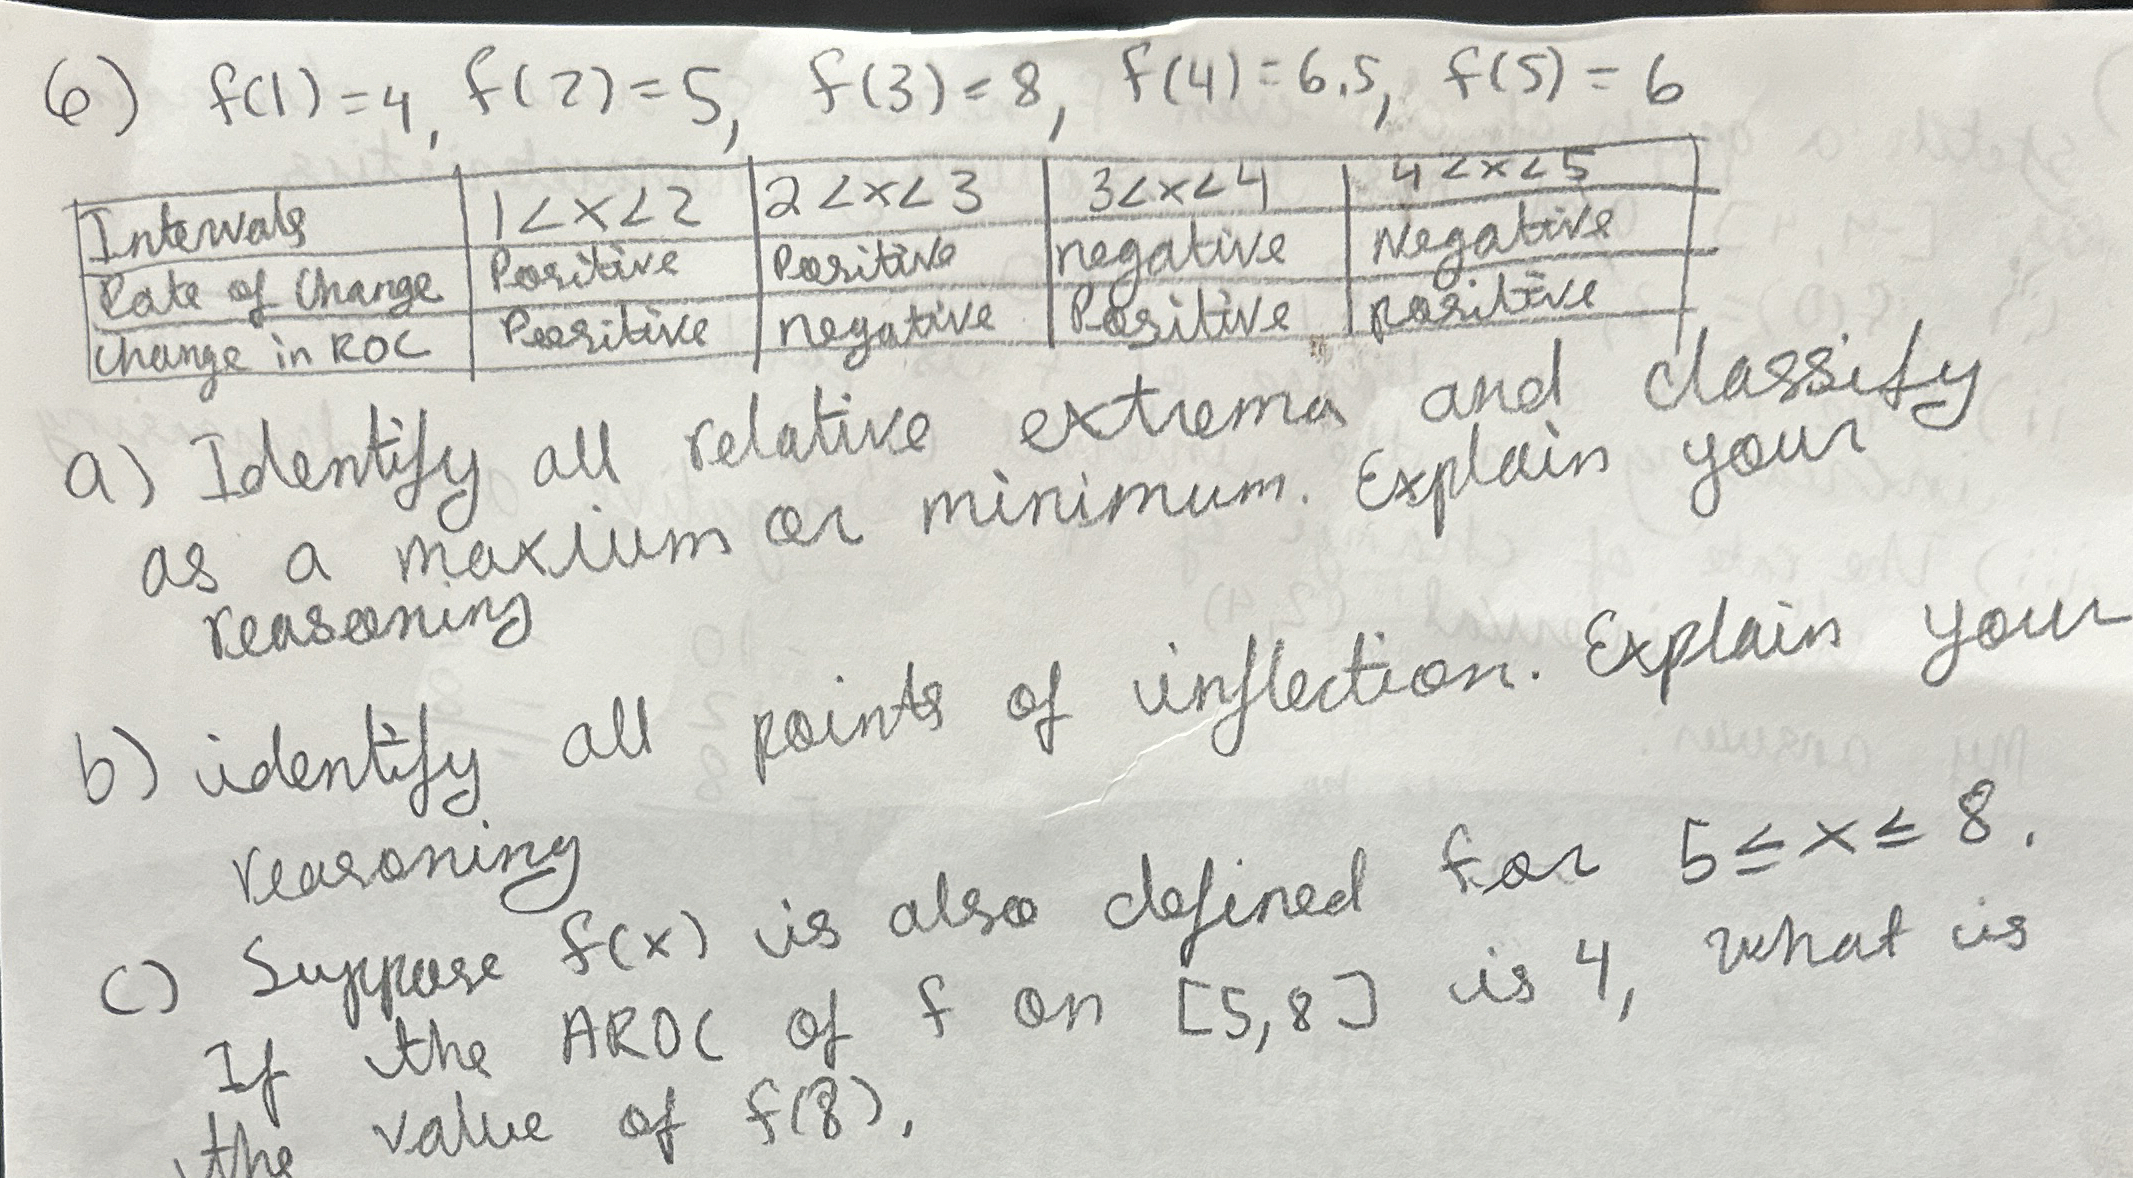 6) f(1)=4, f(2)=5, f(3)=8, f(4)=6.5, f(5)=6
Intervals 1<x<2 2<x<3 3<x<4 4<x<5
Rate of Change Positive Positive negative Negative
Change in ROC Positive negative Positive positive
a) Identify all relative extrema and classify
as a maxium or minimum. Explain your
reasoning
b) identify all points of inflection. Explain your
reasoning
c) Suppose f(x) is also defined for 5≤x≤8.
If the AROC of f on [5,8] is 4, what is
the value of f(8).